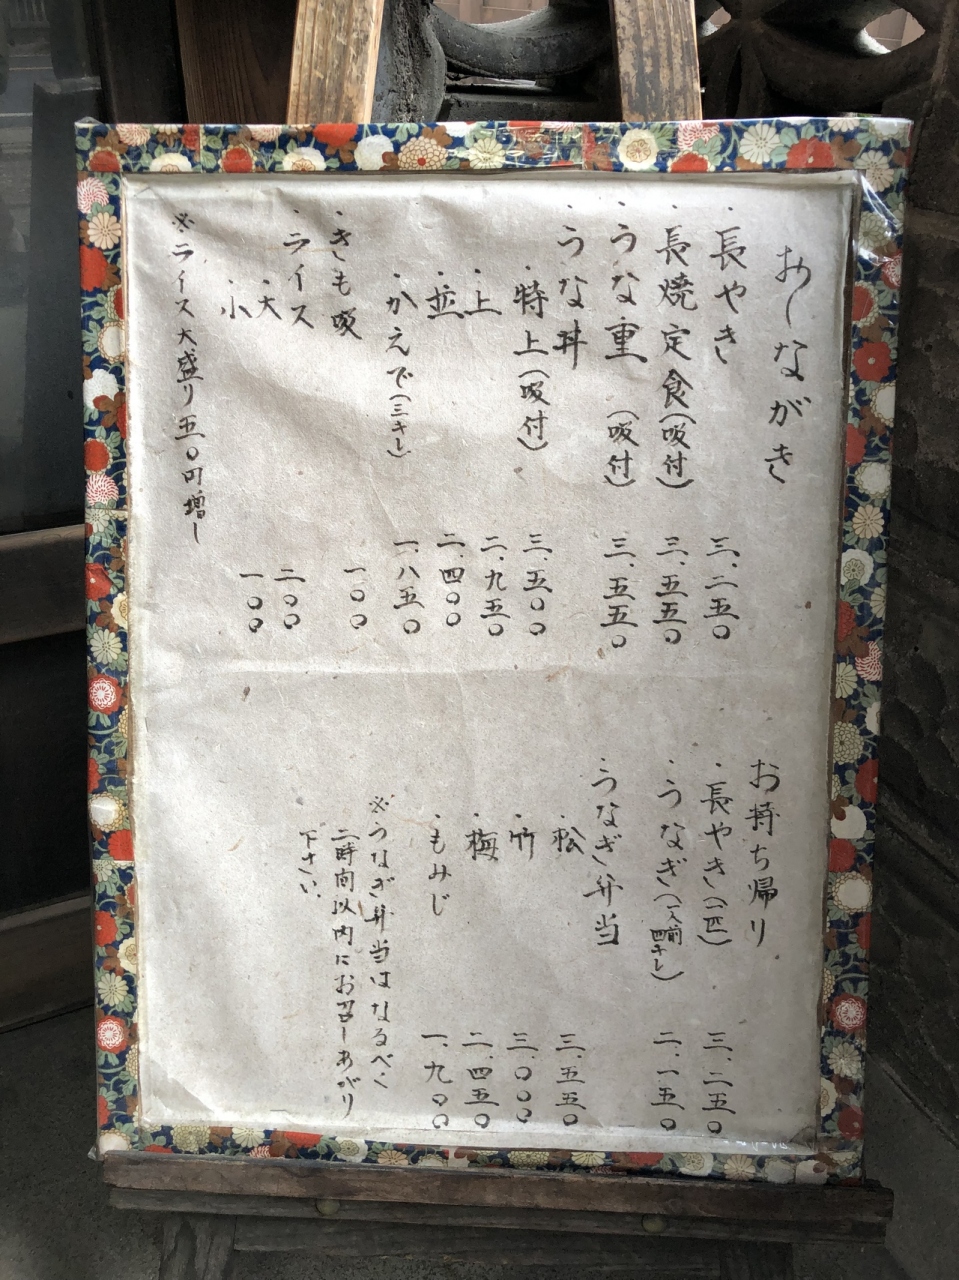 おしながき
・長やき 三、二五〇
・長焼定食(吸付) 三、五五〇
・うな重(吸付) 三、五五〇
・うな丼
・特上(吸付) 三、五〇〇
・上 二、九五〇
・並 二、四〇〇
・かえで(三キレ) 一、八五〇
・きも吸 一〇〇
・ライス
・大 二〇〇
・小 一〇〇
※ライス大盛り五〇円増し
お持ち帰り
・長やき(一匹) 三、二五〇
・うなぎ(一人前四キレ) 二、一五〇
・うなぎ弁当
・松 三、五五〇
・竹 三、〇〇〇
・梅 二、四五〇
・もみじ 一、九〇〇
※うなぎ弁当はなるべく
二時間以内にお召しあがり
下さい。